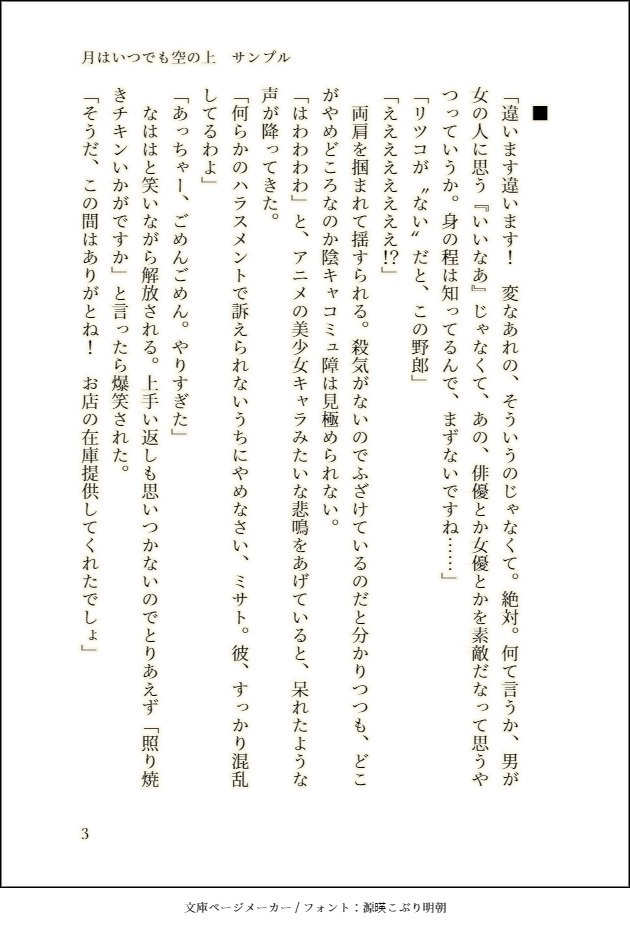 月はいつでも空の上　サンプル
■
「違います違います！　変なあれの、そういうのじゃなくて。絶対。何て言うか、男が
女の人に思う『いいなあ』じゃなくて、あの、俳優とか女優とかを素敵だなって思うや
つっていうか。身の程は知ってるんで、まずないですね……」
「リツコが〝ない〟だと、この野郎」
「ええええええええ!?」
　両肩を掴まれて揺すられる。殺気がないのでふざけているのだと分かりつつも、どこ
がやめどころなのか陰キャコミュ障は見極められない。
「はわわわわ」と、アニメの美少女キャラみたいな悲鳴をあげていると、呆れたような
声が降ってきた。
「何らかのハラスメントで訴えられないうちにやめなさい、ミサト。彼、すっかり混乱
してるわよ」
「あっちゃー、ごめんごめん。やりすぎた」
　なははと笑いながら解放される。上手い返しも思いつかないのでとりあえず「照り焼
きチキンいかがですか」と言ったら爆笑された。
「そうだ、この間はありがとね！　お店の在庫提供してくれたでしょ」
3
文庫ページメーカー / フォント：源暎こぶり明朝